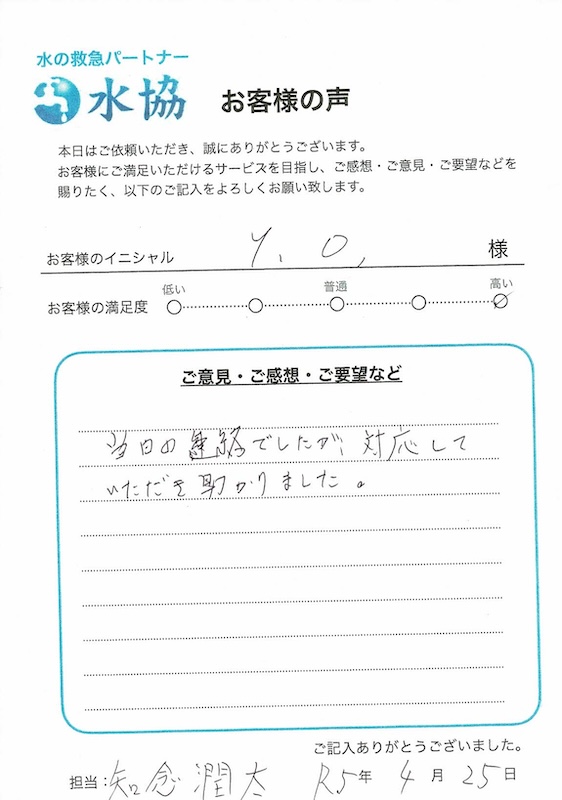 水の救急パートナー
水協
お客様の声
本日はご依頼いただき、誠にありがとうございます。
お客様にご満足いただけるサービスを目指し、ご感想・ご意見・ご要望などを
賜りたく、以下のご記入をよろしくお願い致します。
お客様のイニシャル Y. O, 様
低い 普通 高い
お客様の満足度
ご意見・ご感想・ご要望など
当日の連絡でしたが、対応して
いただき助かりました。
ご記入ありがとうございました。
担当:知念潤太 R5年 4月 25日